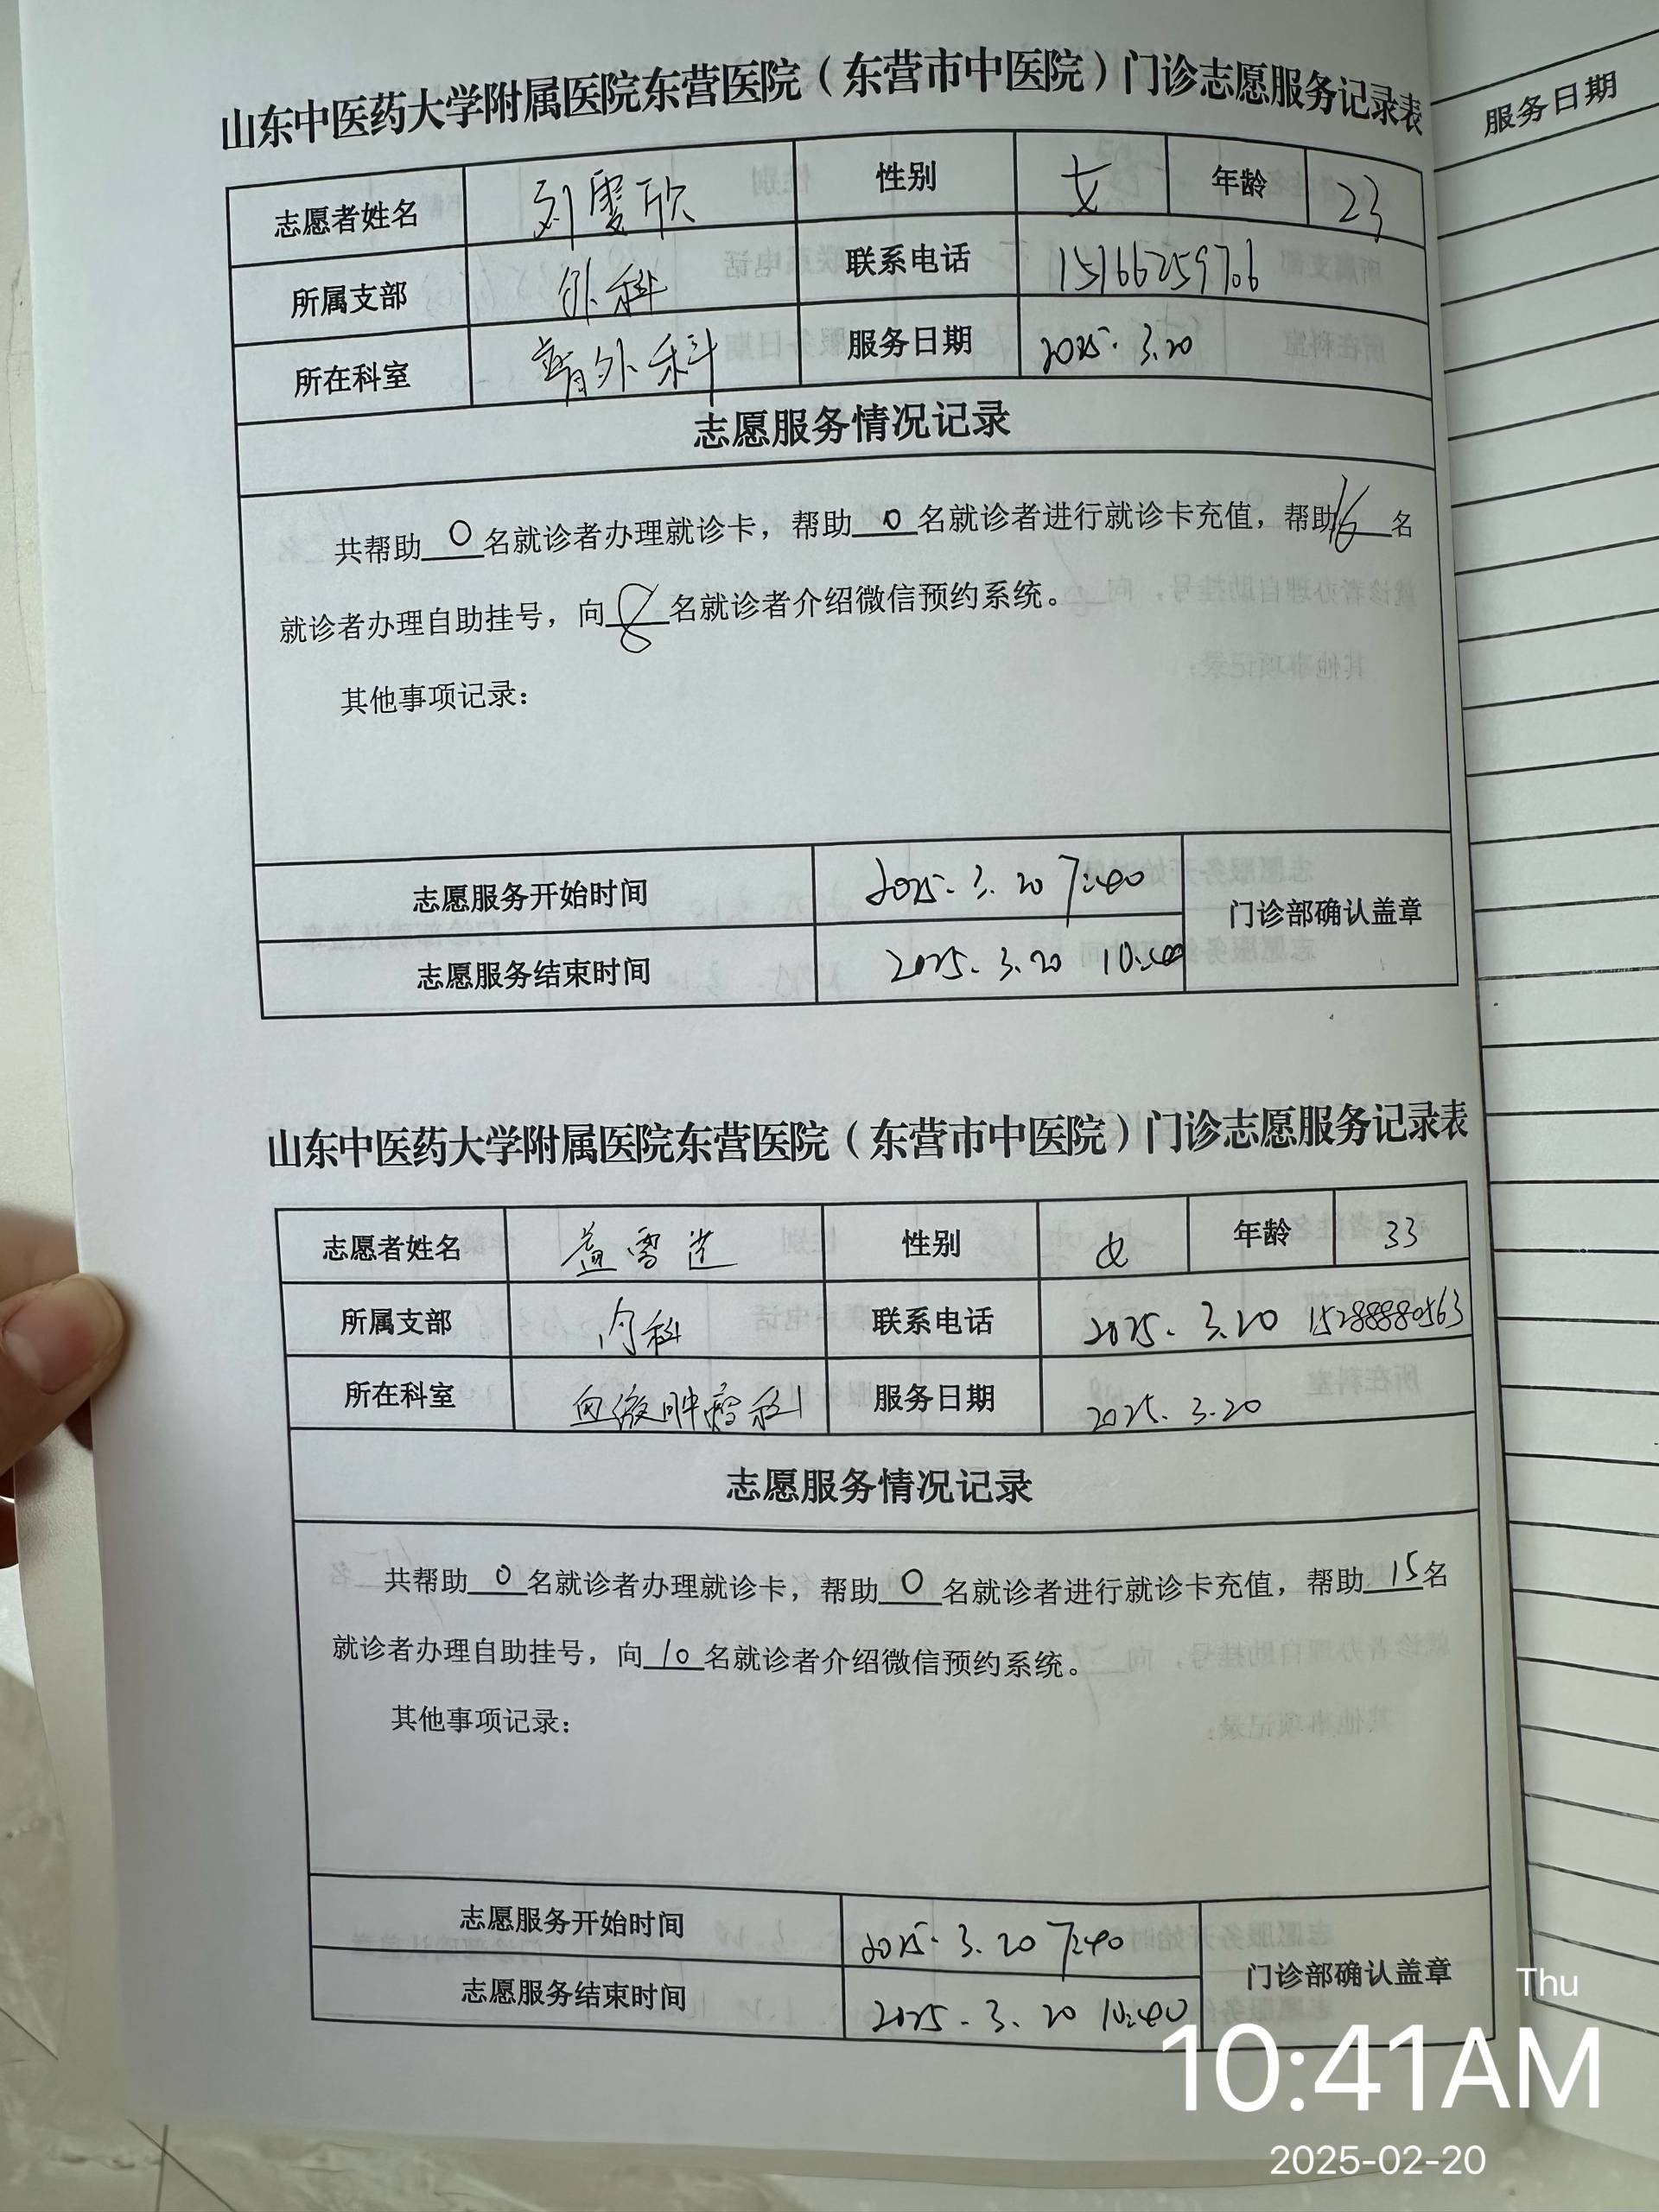 山东中医药大学附属医院东营医院（东营市中医院）门诊志愿服务记录表
服务日期
志愿者姓名 刘雯欣 性别 女 年龄 23
所属支部 外科 联系电话 15166259706
所在科室 普外科 服务日期 2025.3.20
志愿服务情况记录
共帮助 0 名就诊者办理就诊卡，帮助 0 名就诊者进行就诊卡充值，帮助 16 名
就诊者办理自助挂号，向 8 名就诊者介绍微信预约系统。
其他事项记录：
志愿服务开始时间 2025.3.20 7:40
门诊部确认盖章
志愿服务结束时间 2025.3.20 10:40
山东中医药大学附属医院东营医院（东营市中医院）门诊志愿服务记录表
志愿者姓名 盖雪 性别 女 年龄 33
所属支部 内科 联系电话 2025.3.20 15288880563
所在科室 血液肿瘤科 服务日期 2025.3.20
志愿服务情况记录
共帮助 0 名就诊者办理就诊卡，帮助 0 名就诊者进行就诊卡充值，帮助 15 名
就诊者办理自助挂号，向 10 名就诊者介绍微信预约系统。
其他事项记录：
志愿服务开始时间 2025.3.20 7:40
门诊部确认盖章
志愿服务结束时间 2025.3.20 10:40
Thu
10:41AM
2025-02-20